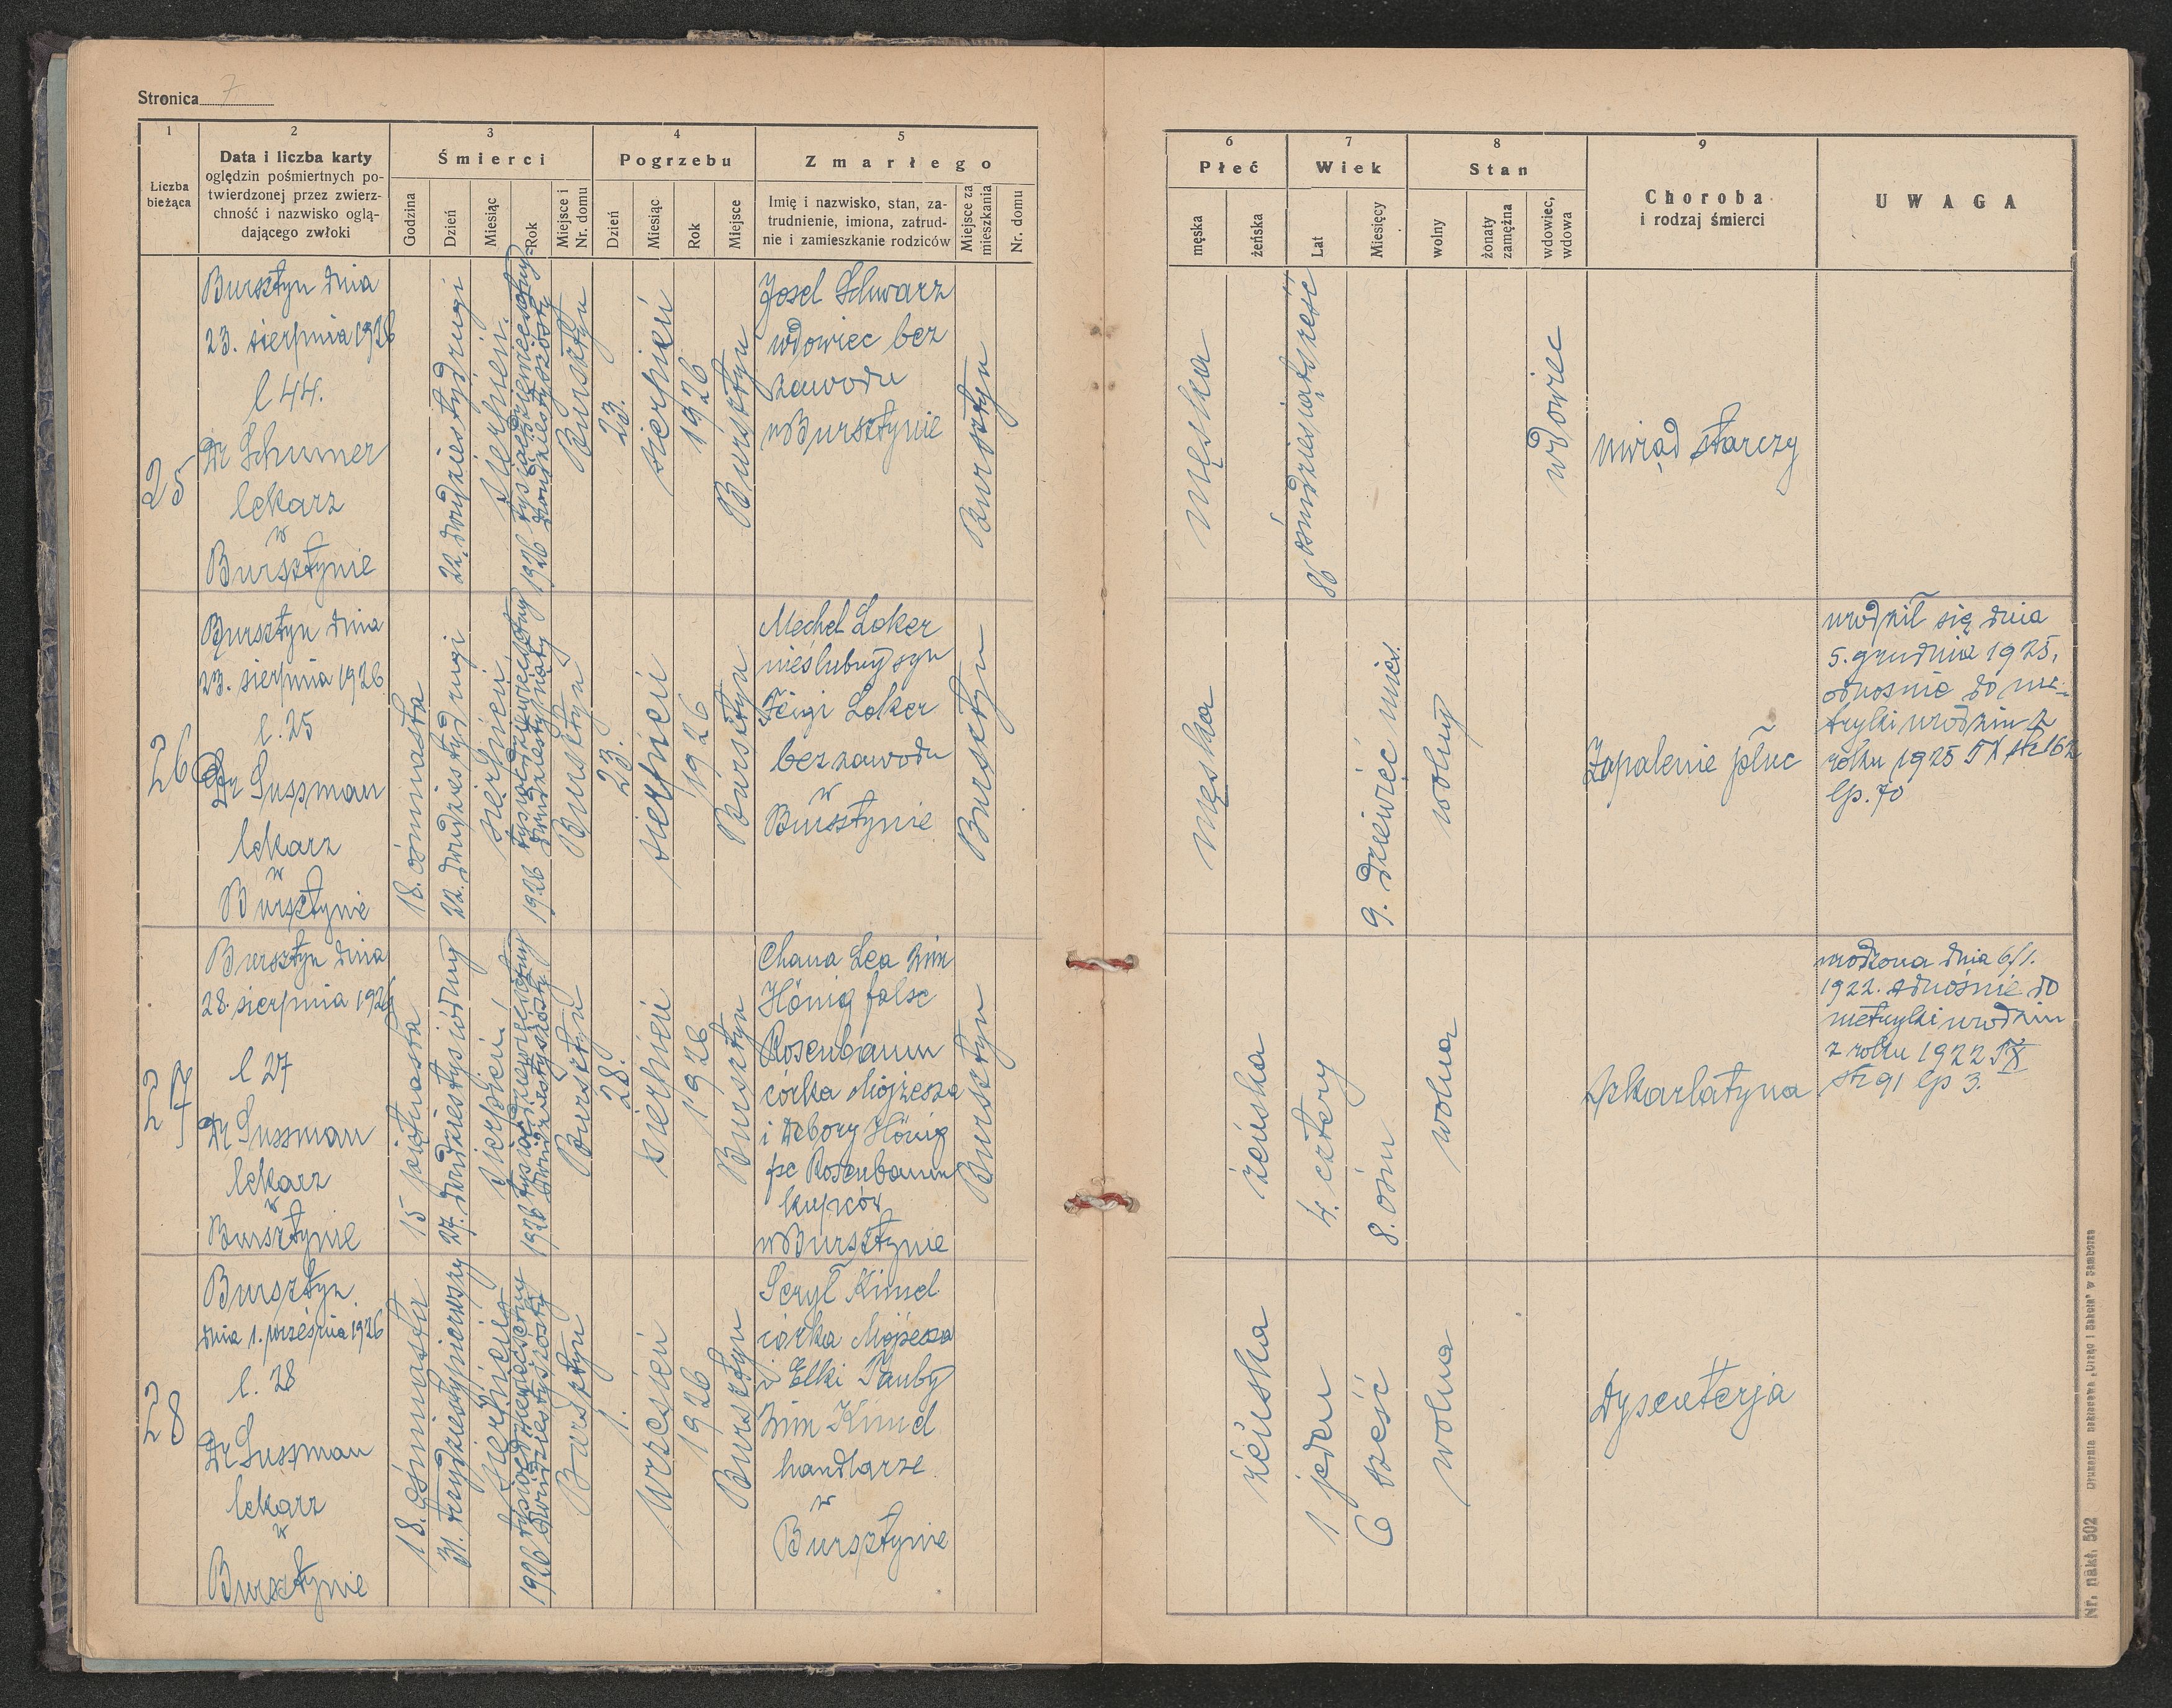 Stronica 7
1
2
3
4
5
Liczba
bieżąca
Data i liczba karty
oględzin pośmiertnych po-
twierdzonej przez zwierz-
chność i nazwisko oglą-
dającego zwłoki
Śmierci
Godzina
Dzień
Miesiąc
Rok
Miejsce i
Nr. domu
Pogrzebu
Dzień
Miesiąc
Rok
Miejsce
Zmarłego
Imię i nazwisko, stan, za-
trudnienie, imiona, zatrud-
nie i zamieszkanie rodziców
Miejsce za
mieszkania
Nr. domu
6
7
8
9
Płeć
męska
żeńska
Wiek
Lat
Miesięcy
Stan
wolny
żonaty
zamężna
wdowiec,
wdowa
Choroba
i rodzaj śmierci
UWAGA
25
Bursztyn dnia
23. sierpnia 1926
l 44.
Dr Schumer
lekarz
w
Bursztynie
22. dwudziestydrugi
sierpień.
1926 tysiącdziewięcsetny
dwudziestyszósty
Bursztyn
23.
sierpień
1926
Bursztyn
Josel Schwarz
wdowiec bez
zawodu
w Bursztynie
Bursztyn
męska
86 ośmdziesiątsześć
wdowiec
uwiąd starczy
26
Bursztyn dnia
23. sierpnia 1926
l. 25
Dr Sussman
lekarz
w
Bursztynie
18. ośmnasta
22. dwudziestydrugi
sierpień
1926 tysiącdziewięcsetny
Bursztyn
23.
sierpień
1926
Bursztyn
Mechel Loker
nieślubny syn
Feigi Loker
bez zawodu
w
Bursztynie
Bursztyn
męska
9. dziewięć mies.
wolny
Zapalenie płuc
urodził się dnia
5. grudnia 1925,
odnośnie do me-
tryki urodzin z
roku 1925 T X str 162
lp. 70
27
Bursztyn dnia
28. sierpnia 1926
l 27
Dr Sussman
lekarz
w
Bursztynie
15 piętnasta
27. dwudziestysiódmy
sierpień
1926 tysiącdziewięcsetny
dwudziestyszósty
Bursztyn
28.
sierpień
1926
Bursztyn
Chana Lea zim
Hönig false
Rosenbaum
córka Mojżesza
i Debory Hönig
fse Rosenbaum
kupców
w Bursztynie
Bursztyn
żeńska
4. cztery
8. ośm
wolna
szkarlatyna
urodzona dnia 6/1.
1922. odnośnie do
metryki urodzin
z roku 1922 T X
str 91 lp 3.
28
Bursztyn
dnia 1. września 1926
l. 28
Dr Sussman
lekarz
w
Bursztynie
18. ośmnasta
31. trzydziestypierwszy
sierpień
1926 tysiącdziewięcsetny
dwudziestyszósty
Bursztyn
1.
wrzesień
1926
Bursztyn
Seryl Kimel
córka Mojżesza
i Elki Tauby
zim Kimel
handlarze
w
Bursztynie
żeńska
1 jeden
6 sześć
wolna
Dysenterja
Nr. nakł. 502 Drukarnia nakładowa „Urząd i Szkoła" w Samborze